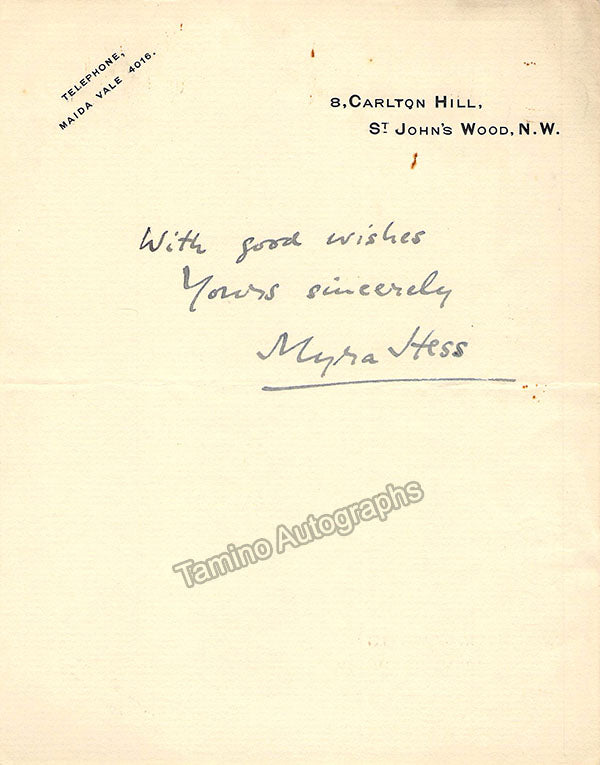 TELEPHONE,
MAIDA VALE 4016.
8, CARLTON HILL,
ST JOHN'S WOOD, N.W.
With good wishes
Yours sincerely
Myra Hess
Tamino Autographs